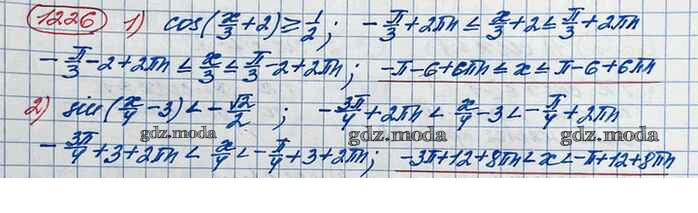 1226 1) cos(x/3+2) ≥ 1/2; -π/3+2πn ≤ x/3+2 ≤ π/3+2πn
-π/3-2+2πn ≤ x/3 ≤ π/3-2+2πn; -π-6+6πn ≤ x ≤ π-6+6πn
2) sin(x/4-3) < -√2/2; -3π/4+2πn < x/4-3 < -π/4+2πn
gdz.moda gdz.moda
-3π/4+3+2πn < x/4 < -π/4+3+2πn; -3π+12+8πn < x < -π+12+8πn
gdz.moda gdz.moda